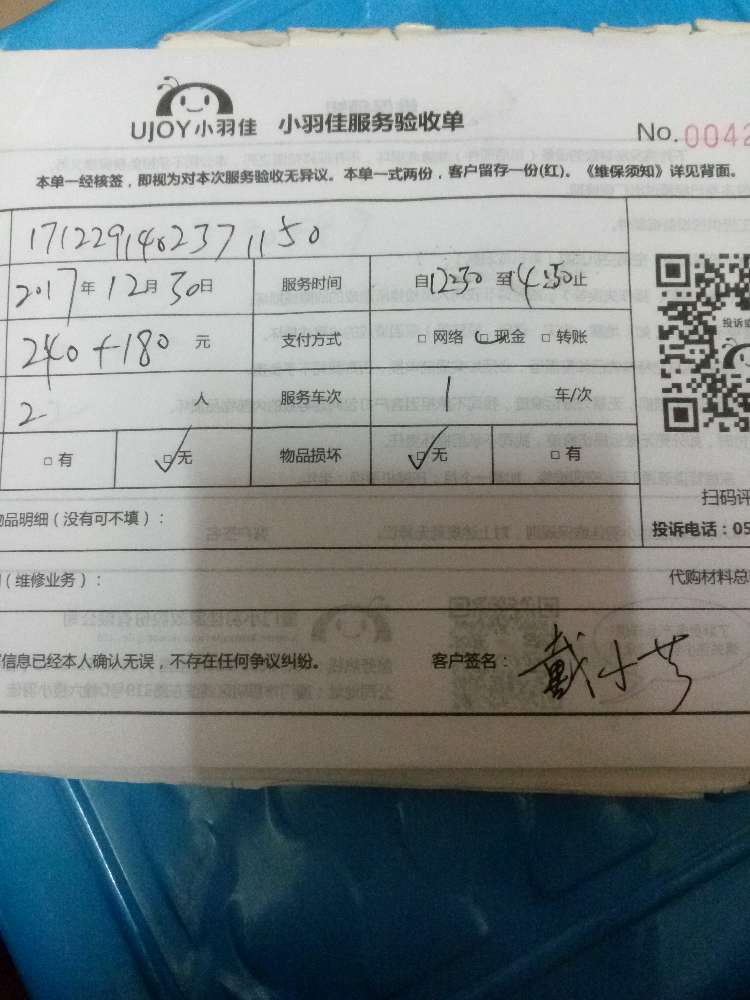 UJOY小羽佳 小羽佳服务验收单 No.0042
本单一经核签，即视为对本次服务验收无异议。本单一式两份，客户留存一份(红)。《维保须知》详见背面。
171229140237 1150
2017年12月30日 服务时间 自12:30至14:30止
240+180 元 支付方式 □网络 □现金 □转账
2 人 服务车次 1 车/次
□有 □无 物品损坏 □无 □有
扫码评
物品明细（没有可不填）： 投诉电话：05
（维修业务）： 代购材料总
信息已经本人确认无误，不存在任何争议纠纷。 客户签名：戴小芳